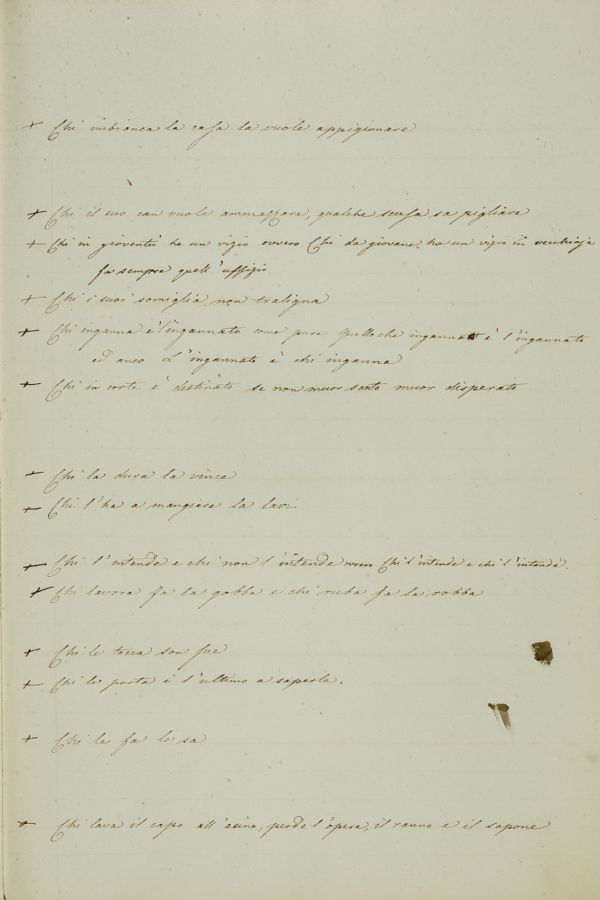 + Chi imbianca la casa la vuole appigionare
+ Chi il suo can vuole ammazzare, qualche scusa sa pigliare
+ Chi in gioventù ha un vizio ovvero Chi da giovane ha un vizio in vecchiaja
fa sempre quell' uffizio
+ Chi i suoi somiglia non traligna
+ Chi inganna è l'ingannato come pure Quello che inganna è l'ingannato
ed anco L'ingannato è chi inganna
+ Chi in corte è destinato se non muor santo muor disperato
+ Chi la dura la vince
+ Chi l'ha a mangiare la lavi
+ Chi l'intende e chi non l'intende ovvero Chi l'intende e chi l'intenda.
+ Chi lavora fa la gobba e chi ruba fa la robba
+ Chi le tocca son sue
+ Chi le porta è l'ultimo a saperle.
+ Chi le fa le sa
+ Chi lava il capo all'asino, perde l'opera, il ranno e il sapone